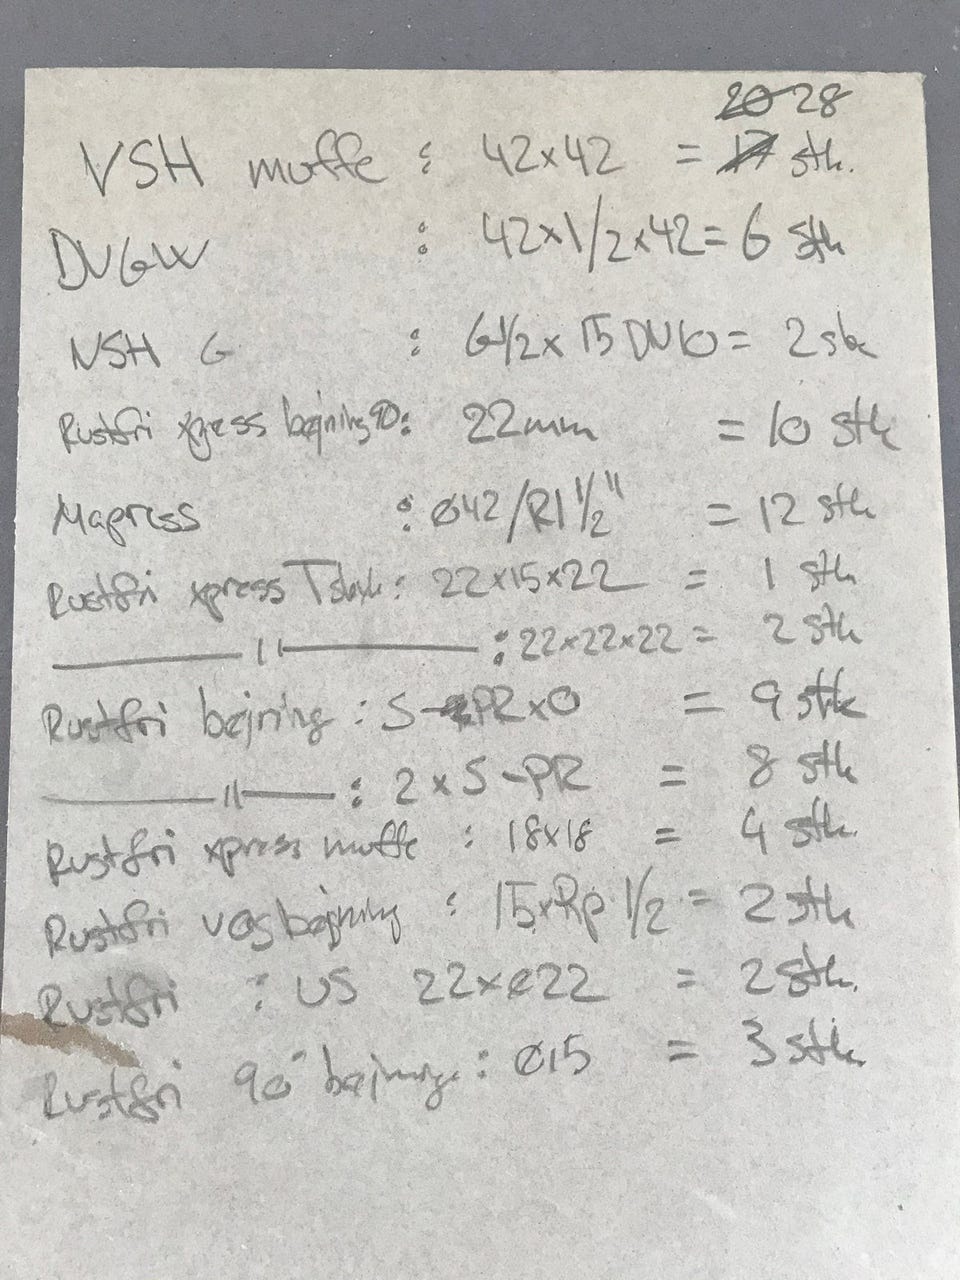 20 28
VSH muffe : 42x42 = 17 stk.
DVGW : 42x1/2x42 = 6 stk
NSH G : G1/2x 15 DN10 = 2 stk
Rustfri xpress bøjning 90: 22mm = 10 stk
Mapress : Ø42/R1 1/2" = 12 stk
Rustfri xpress Tstyk: 22x15x22 = 1 stk
——— 11 ——— : 22x22x22 = 2 stk
Rustfri bøjning : S-PRxO = 9 stk
——— 11 ——— : 2xS-PR = 8 stk
Rustfri xpress muffe : 18x18 = 4 stk.
Rustfri vægbøjning : 15xRp 1/2 = 2 stk
Rustfri : US 22xø22 = 2 stk.
Rustfri 90° bøjninge : Ø15 = 3 stk.